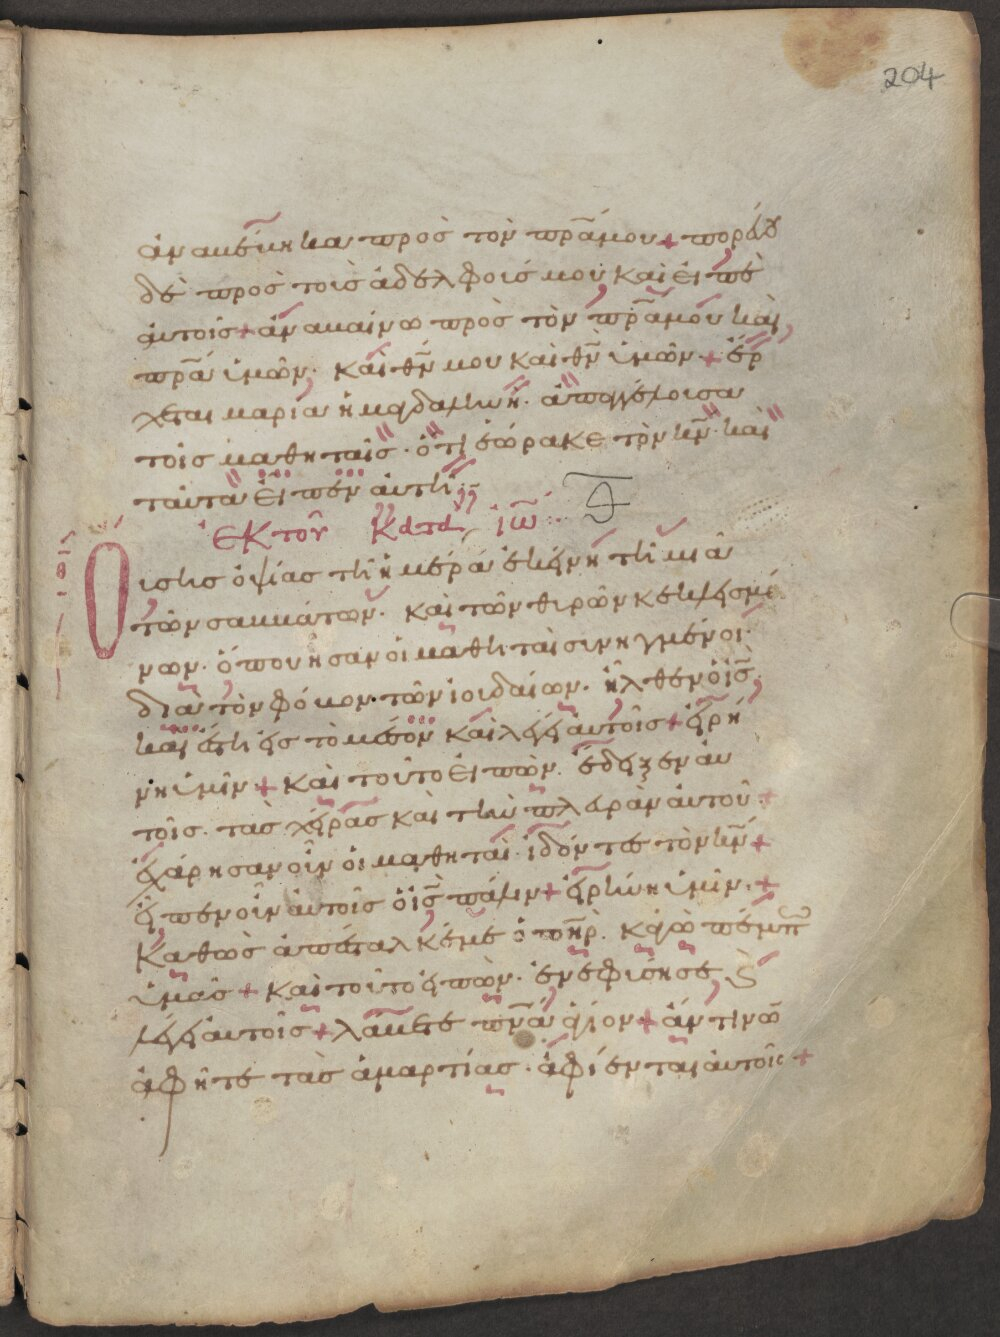 204
ἀναβέβηκα πρὸς τὸν πρ̅α μου + πορεύου
δὲ πρὸς τοὶς ἀδελφοίς μου καὶ εἰπὲ
ἀυτοῖς + ἀναβαίνω πρὸς τὸν πρ̅α μου καὶ
πρ̅α ὑμῶν. καὶ θν̅ μου καὶ θν̅ ὑμῶν + ἔρ
χεται μαρία ἡ μαγδαλινὴ. ἀπαγγέλοισα
τοίς μαθηταῖς. ὅτι ἑώρακε τὸν κν̅. καὶ
ταύτα εἶπεν ἀυτῆ
ἐκ τοῦ κατὰ ἰω̅
Οισης ὀψίας τῆ ἡμέρα ἐκείνη τῆ μιᾶ
τῶν σαββάτων. καὶ τῶν θιρῶν κεκλεισμέ
νων. ὅπου ἦσαν οἱ μαθηταὶ σινηγμένοι.
διὰ τὸν φόβον. τῶν ἰοιδαίων. ἦλθεν ὁ ις̅.
καὶ ἔστη εἰς τὸ μέσον καὶ λέγει ἀυτοῖς + εἰρή
νη ὑμῖν + καὶ τοῦτο εἰπὼν. ἔδειξεν ἀυ
τοῖς. τὰς χείρας καὶ τὴν πλευρὰν ἀυτοῦ +
ἐχάρησαν οἶν οἱ μαθηταὶ. ἰδόντες τὸν κν̅ +
εἶπεν οἶν ἀυτοῖς ὁ ις̅ πάλιν + εἰρίνη ὑμῖν. +
Καθὼς ἀπέσταλκέ με ὁ πηρ̅. κἀγὼ πέμπω
ὑμᾶς + καὶ τοῦτο εἰπὼν. ἐνεφύσησε, καὶ
λέγει ἀυτοῖς + λάβετε πνᾶ ἅγιον + ἄν τινων
ἀφῆτε τὰς ἁμαρτίας. ἀφίενται ἀυτοῖς +